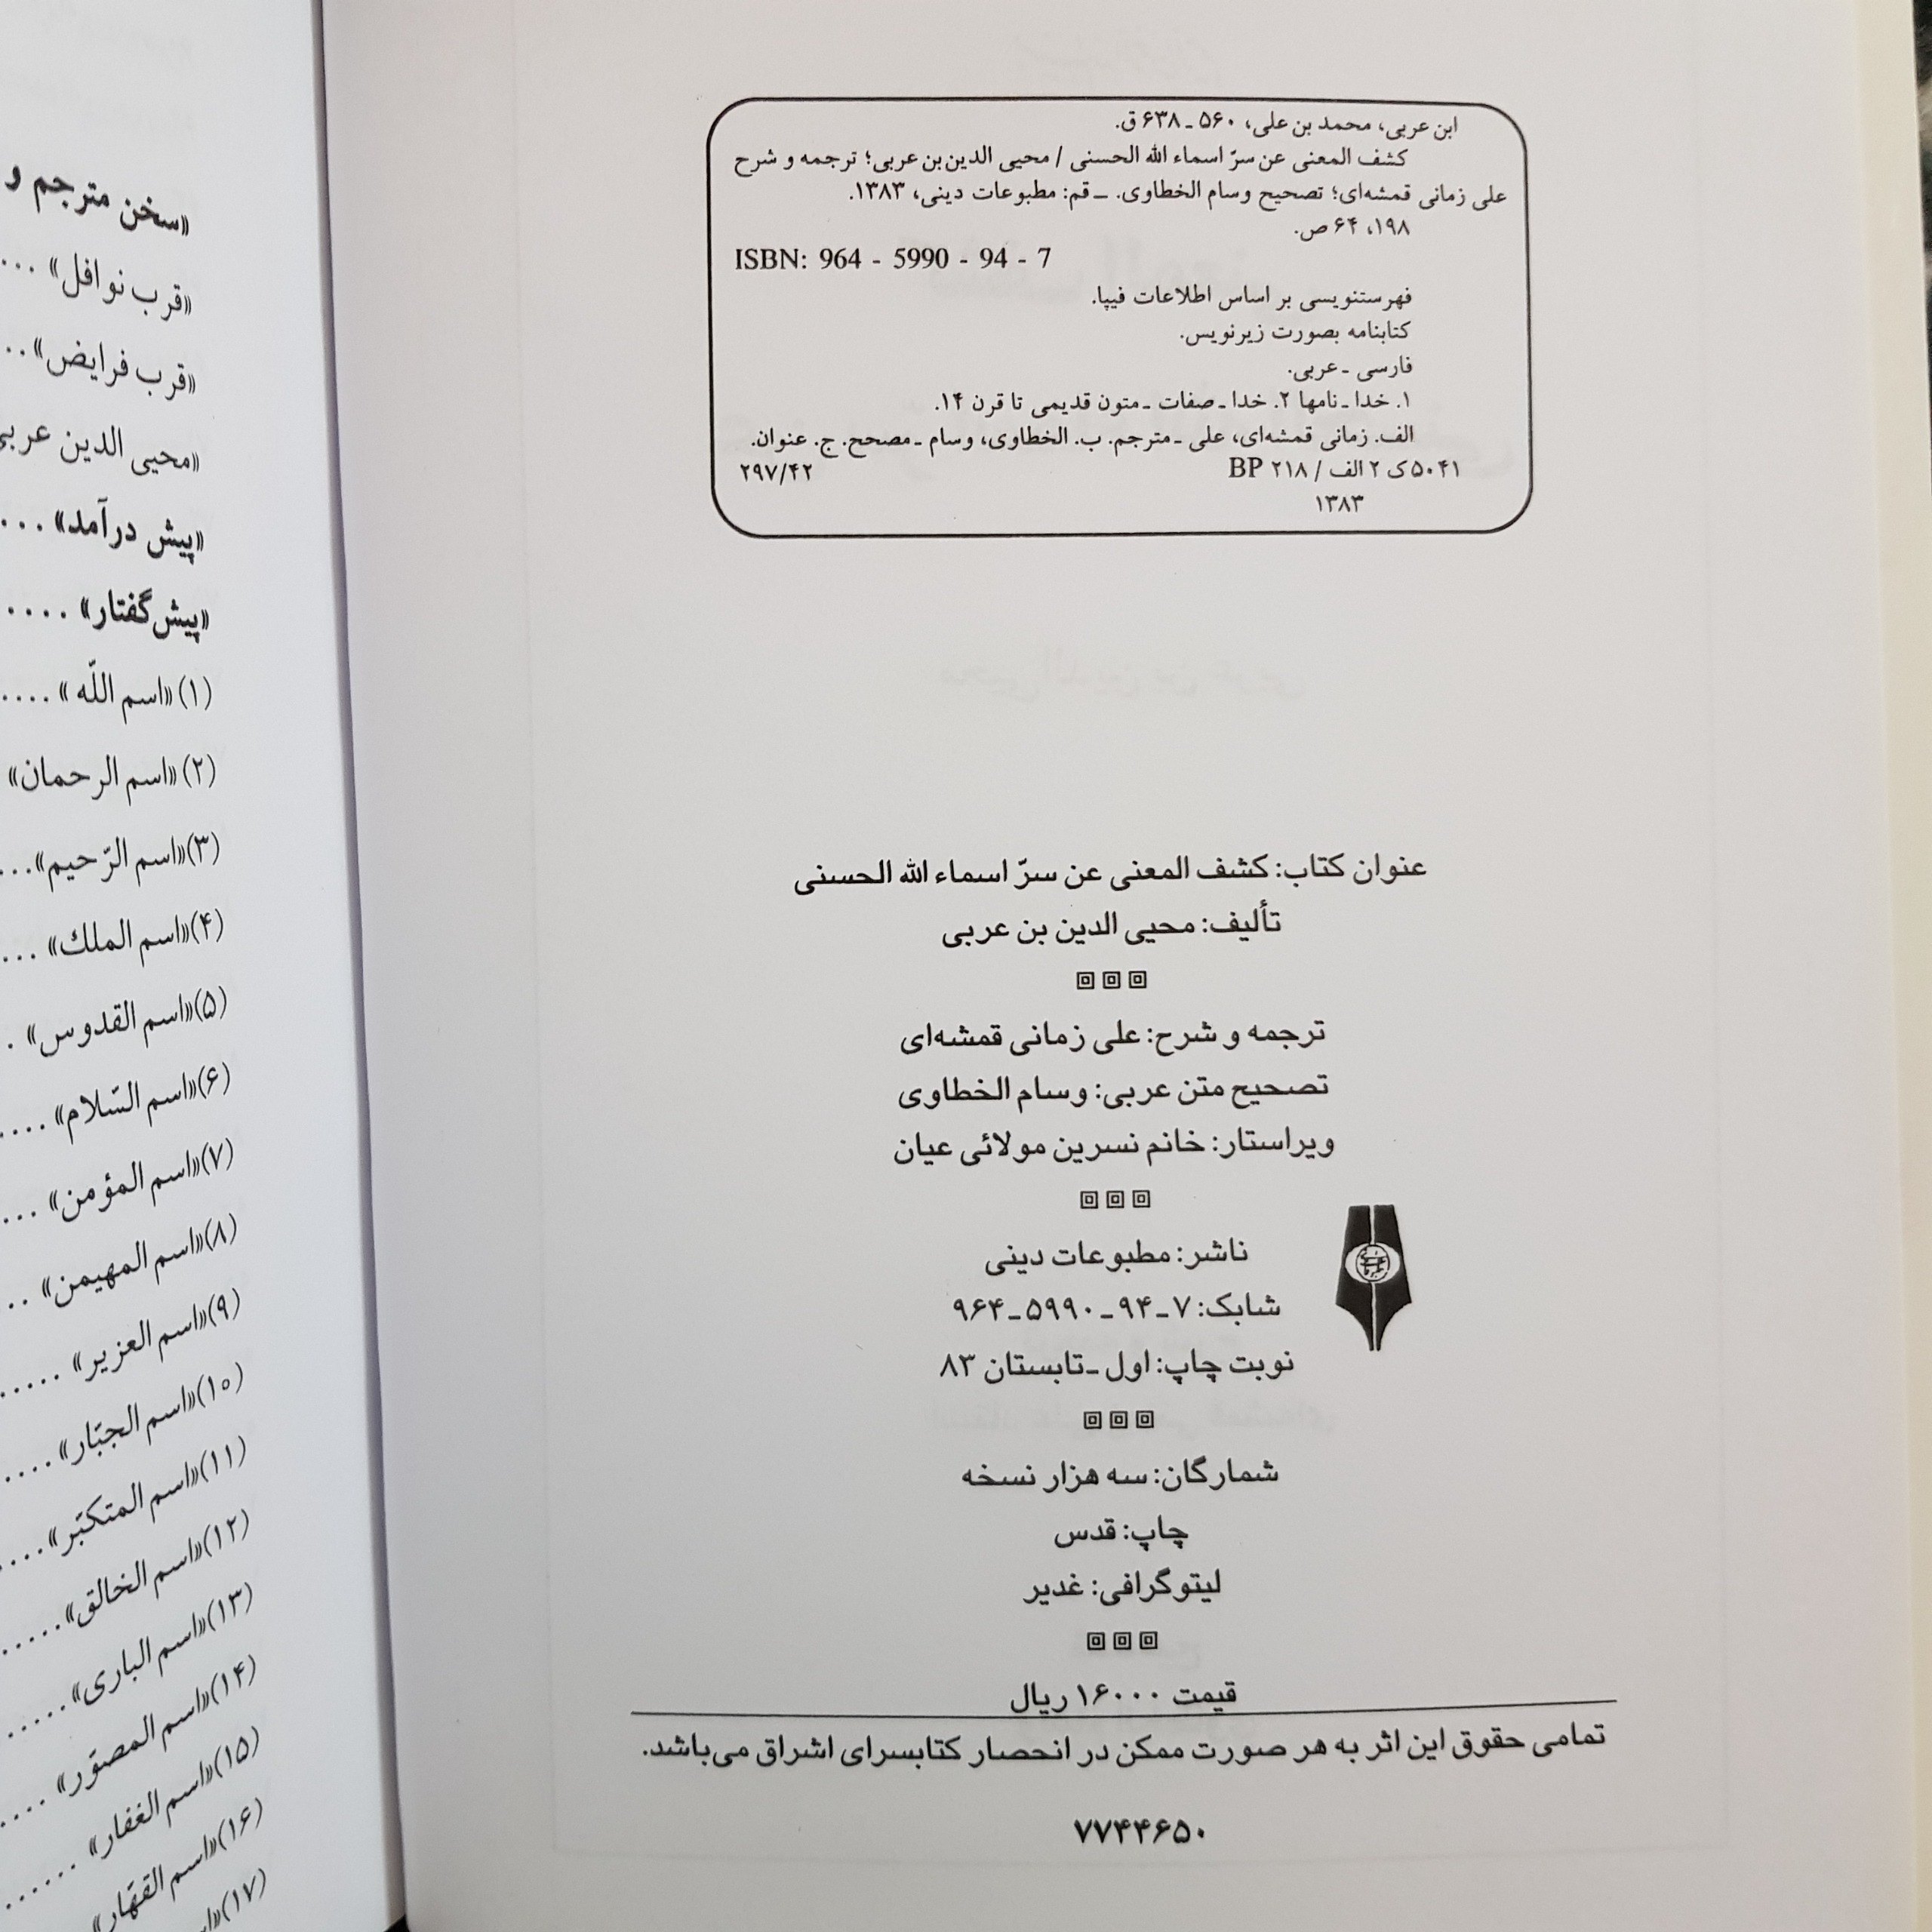 ابن عربی، محمد بن علی، ۵۶۰ ـ ۶۳۸ ق.
کشف المعنی عن سرّ اسماء الله الحسنی / محیی الدین‌بن‌عربی؛ ترجمه و شرح
علی زمانی قمشه‌ای؛ تصحیح وسام الخطاوی. ـ قم: مطبوعات دینی، ۱۳۸۳.
۱۹۸، ۶۴ ص.
ISBN: 964 - 5990 - 94 - 7
فهرستنویسی بر اساس اطلاعات فیپا.
کتابنامه بصورت زیرنویس.
فارسی ـ عربی.
۱. خدا ـ نامها ۲. خدا ـ صفات ـ متون قدیمی تا قرن ۱۴.
الف. زمانی قمشه‌ای، علی ـ مترجم. ب. الخطاوی، وسام ـ مصحح. ج. عنوان.
۵۰۴۱ک ۲ الف / ۲۱۸ BP ۲۹۷/۴۲
۱۳۸۳
عنوان کتاب: کشف المعنی عن سرّ اسماء الله الحسنی
تألیف: محیی الدین بن عربی
ترجمه و شرح: علی زمانی قمشه‌ای
تصحیح متن عربی: وسام الخطاوی
ویراستار: خانم نسرین مولائی عیان
ناشر: مطبوعات دینی
شابک: ۷ـ۹۴ـ۵۹۹۰ـ۹۶۴
نوبت چاپ: اول ـ تابستان ۸۳
شمارگان: سه هزار نسخه
چاپ: قدس
لیتوگرافی: غدیر
قیمت ۱۶۰۰۰ ریال
تمامی حقوق این اثر به هر صورت ممکن در انحصار کتابسرای اشراق می‌باشد.
۷۷۴۴۶۵۰
«سخن مترجم و
«قرب نوافل» ...
«قرب فرایض» ..
«محیی الدین عربی
«پیش درآمد» ...
«پیش‌گفتار» ....
(۱) «اسم اللّه» ....
(۲) «اسم الرحمان»
(۳) «اسم الرّحیم» ...
(۴) «اسم الملك» ...
(۵) «اسم القدوس» .
(۶) «اسم السّلام» ....
(۷) «اسم المؤمن» ...
(۸) «اسم المهیمن» ..
(۹) «اسم العزیر» .....
(۱۰) «اسم الجبّار» ....
(۱۱) «اسم المتکبّر» ....
(۱۲) «اسم الخالق» .....
(۱۳) «اسم الباری» .....
(۱۴) «اسم المصوّر» ....
(۱۵) «اسم الغفار» ......
(۱۶) «اسم القهّار»
(۱۷)